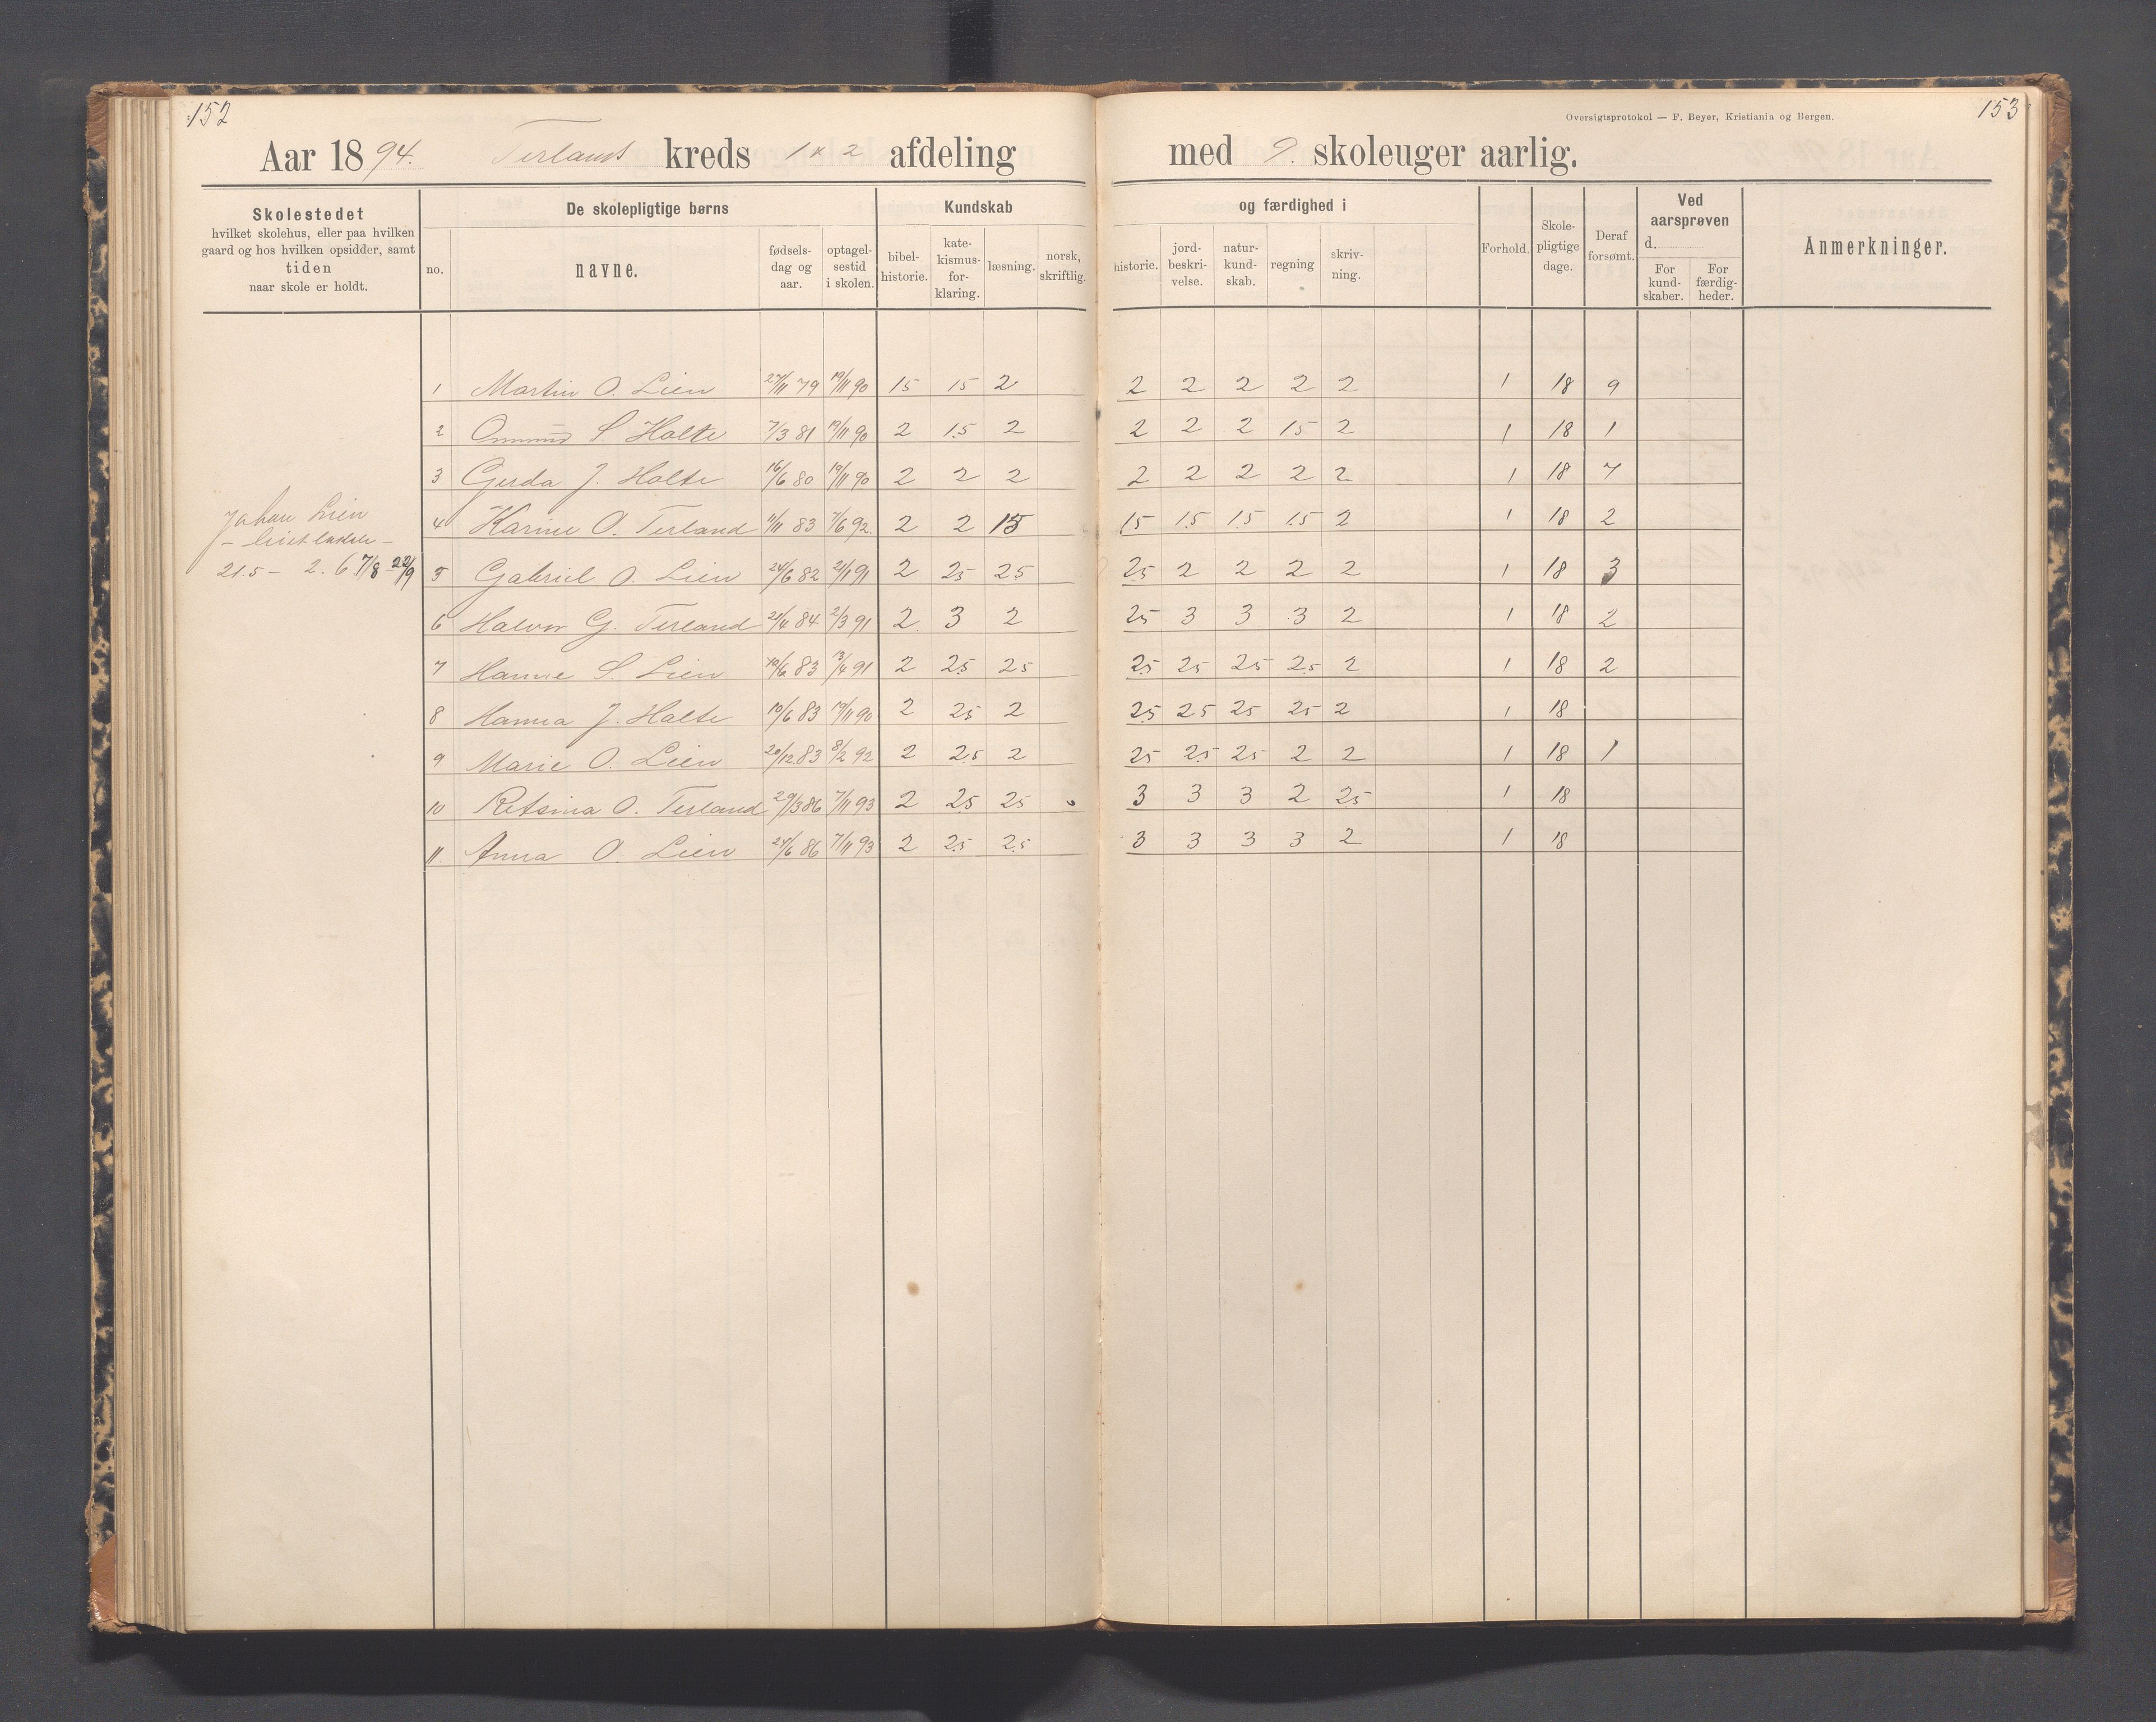 152
153
Oversigtsprotokol — F. Beyer, Kristiania og Bergen.
Aar 1894. Terlands kreds 1 x 2 afdeling med 9. skoleuger aarlig.
Skolestedet
hvilket skolehus, eller paa hvilken
gaard og hos hvilken opsidder, samt
tiden
naar skole er holdt.
De skolepligtige børns
no.
navne.
fødsels-
dag og
aar.
optagel-
sestid
i skolen.
Kundskab
bibel-
historie.
kate-
kismus-
for-
klaring.
læsning.
norsk,
skriftlig.
og færdighed i
historie.
jord-
beskri-
velse.
natur-
kund-
skab.
regning
skriv-
ning.
Forhold.
Skole-
pligtige
dage.
Deraf
forsømt.
Ved
aarsprøven
d.
For
kund-
skaber.
For
færdig-
heder.
Anmerkninger.
1 Martin O. Lien 27/11 79 19/11 90 15 15 2 2 2 2 2 2 1 18 9
2 Ommund S. Holte 7/3 81 19/11 90 2 1.5 2 2 2 2 15 2 1 18 1
3 Gerda J. Holte 16/6 80 19/11 90 2 2 2 2 2 2 2 2 1 18 7
Johan Lien
21.5 – 2.6 7/8 – 22/9
4 Karine O. Terland 11/11 83 7/6 92. 2 2 15 15 1.5 1.5 1.5 2 1 18 2
5 Gabriel O. Lien 24/6 82 21/1 91 2 25 25 25 2 2 2 2 1 18 3
6 Halvor G. Terland 21/4 84 2/3 91 2 3 2 25 3 3 3 2 1 18 2
7 Hanne S Lien 10/6 83 13/4 91 2 25 25 25 25 25 25 2 1 18 2
8 Hanna J. Holte 10/6 83 19/11 90 2 25 2 25 25 25 25 2 1 18
9 Marie O. Lien 20/12 83 8/2 92 2 25 2 25 25 25 2 2 1 18 1
10 Retsina O. Terland 29/3 86 7/11 93 2 25 25 3 3 3 2 25 1 18
11. Anna O. Lien 25/6 86 7/11 93 2 25 25 3 3 3 3 2 1 18